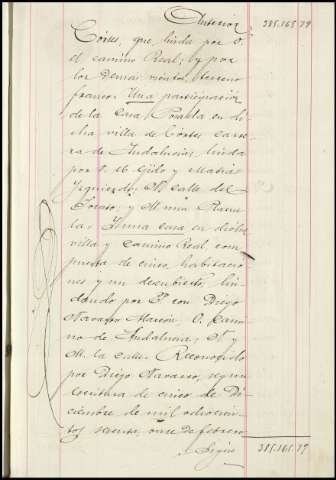 Anterior 385.165.79
Cortes, que linda por P.
el camino Real, y por
los demas vientos, terreno
franco. Una participación
de la casa Posada en di-
cha villa de Cortes carre-
ra de Andalucia, linda
por y Maria
N. calle del
y M.
Y una casa en dicha
villa y Camino Real com-
puesta de cinco habitacio-
nes y un descubierto, lin-
dando por P. con Diego
Navarro O. Cami-
no de Andalucia, N. y
M. la calle. Reconocido
por Diego Navarro, segun
escritura de cinco de Di-
ciembre de mil ochocien-
tos sesenta, once de febrero
Sigue 385.165.79